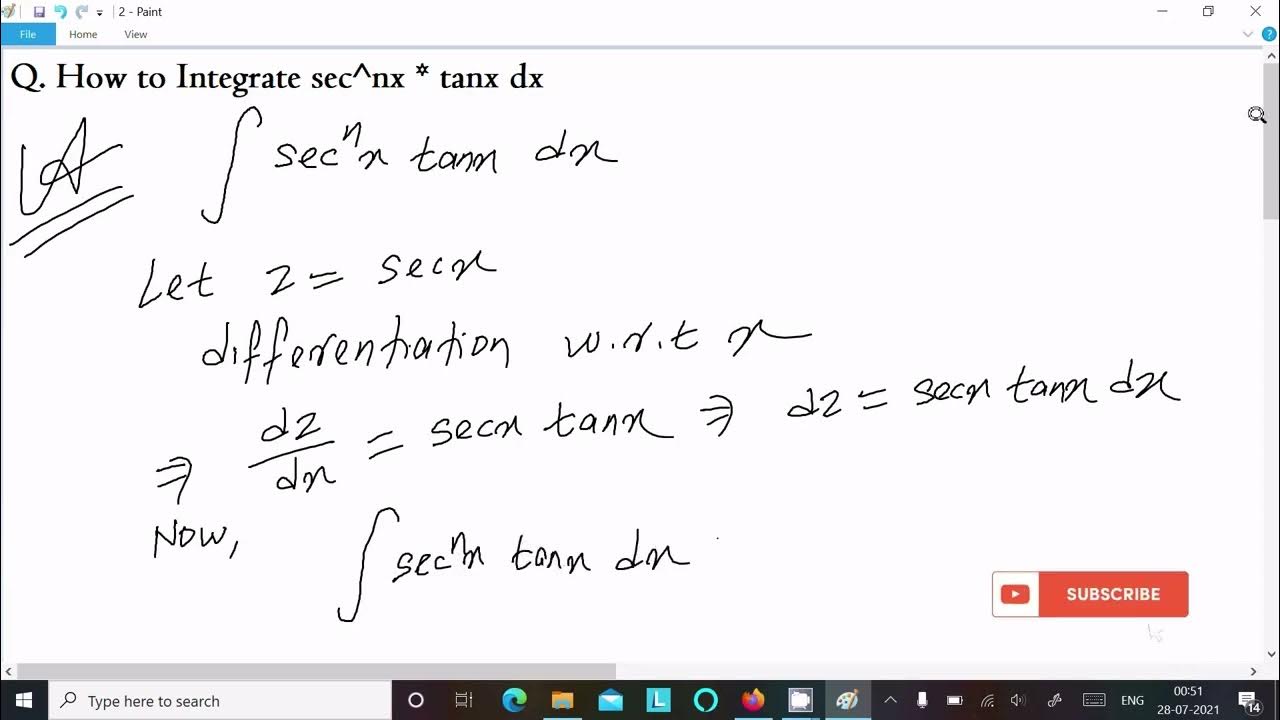 2 - Paint
File Home View
Q. How to Integrate sec^nx * tanx dx
A
∫ secⁿx tanx dx
Let z = secx
differentiation w.r.t x
⇒ dz/dx = secx tanx ⇒ dz = secx tanx dx
Now,
∫ secⁿx tanx dx
SUBSCRIBE
Type here to search
L
ENG
00:51
28-07-2021
14